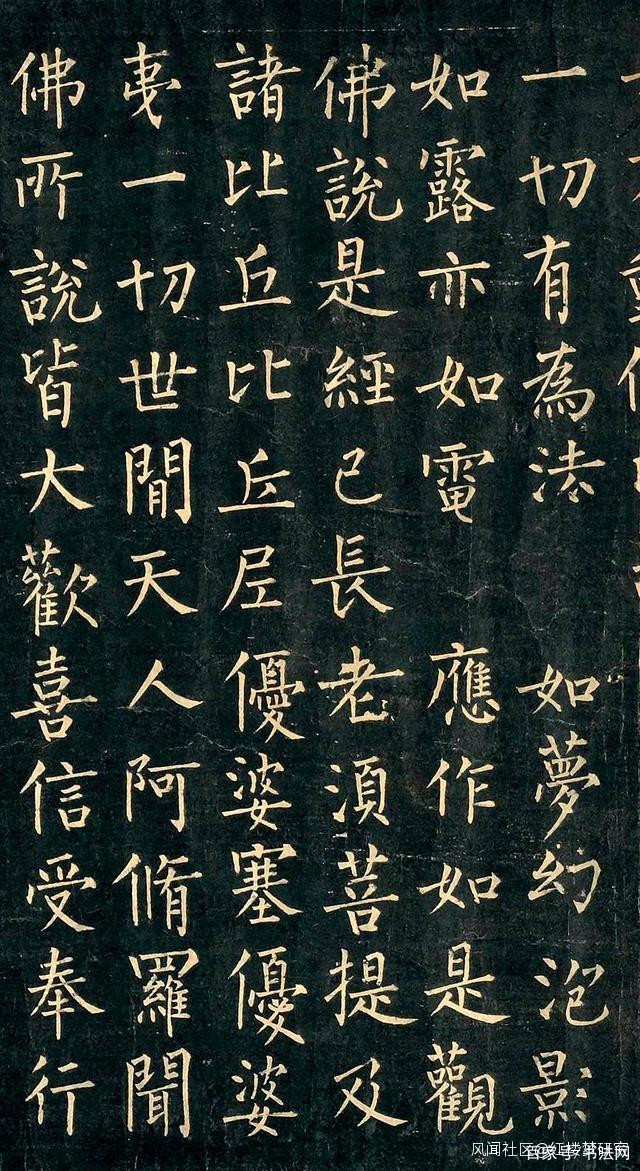 一切有為法 如夢幻泡影
如露亦如電 應作如是觀
佛說是經已長老湏菩提及
諸比丘比丘尼優婆塞優婆
夷一切世間天人阿脩羅聞
佛所說皆大歡喜信受奉行
风闻社区@红楼梦研究
百家号/书法网